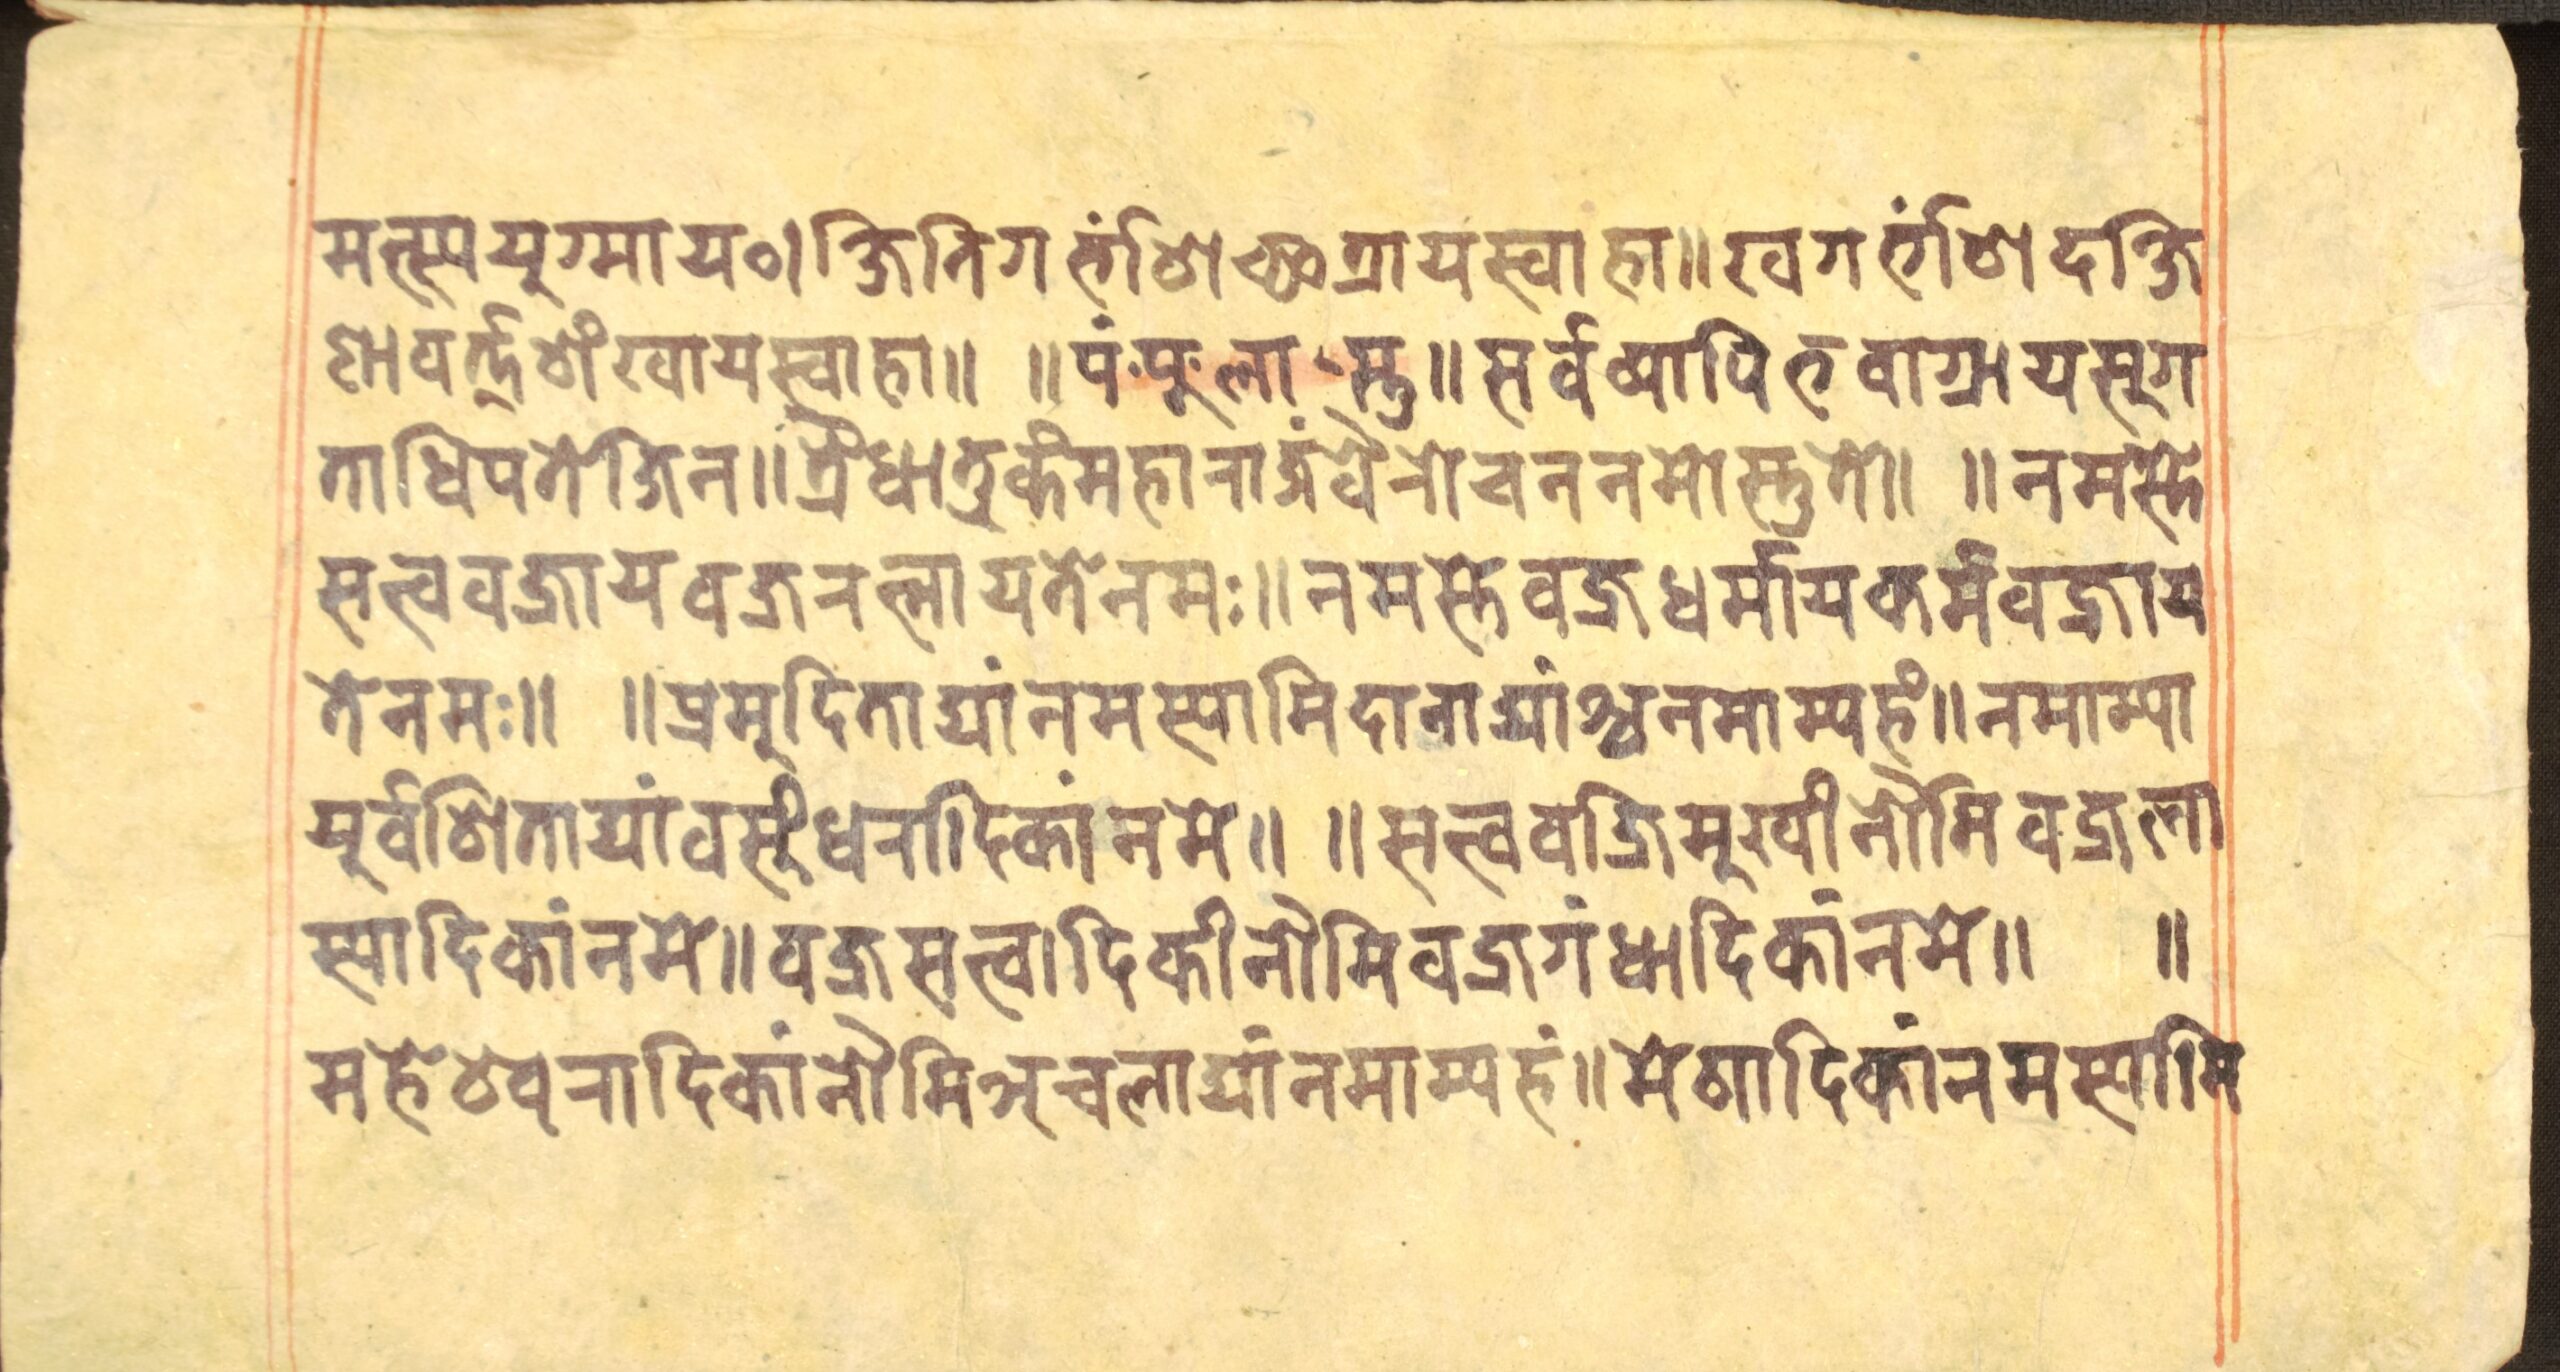 मत्स्ययुग्माय०।क्षितिगर्भशिछत्रायस्वाहा॥खगर्भशिदक्षि
णावर्त्तशंखायस्वाहा॥ ॥पं·पु·ला·स्तु॥सर्वव्यापिभवाग्रायसुग
ताधिपतेजिन॥त्रैधातुकंमहाराजंवैरोचननमोस्तुते॥ ॥नमस्ते
सत्त्ववज्रायवज्ररत्नायतेनमः॥नमस्तेवज्रधर्मायकर्मवज्राय
तेनमः॥ ॥प्रमुदिताद्यांनमस्यामिदानाद्यांश्चनमाम्यहं॥नमाम्या
युर्वशिताद्यांवसुंधरादिकांनमे॥ ॥सत्त्ववज्रिमुखींनौमिवज्रला
स्यादिकांनमे॥वज्रसत्त्वादिकींनौमिवज्रगंधादिकांनमे॥ ॥
महेश्वरादिकांनौमिअचलाद्यांनमाम्यहं॥मेशादिकांनमस्यामि